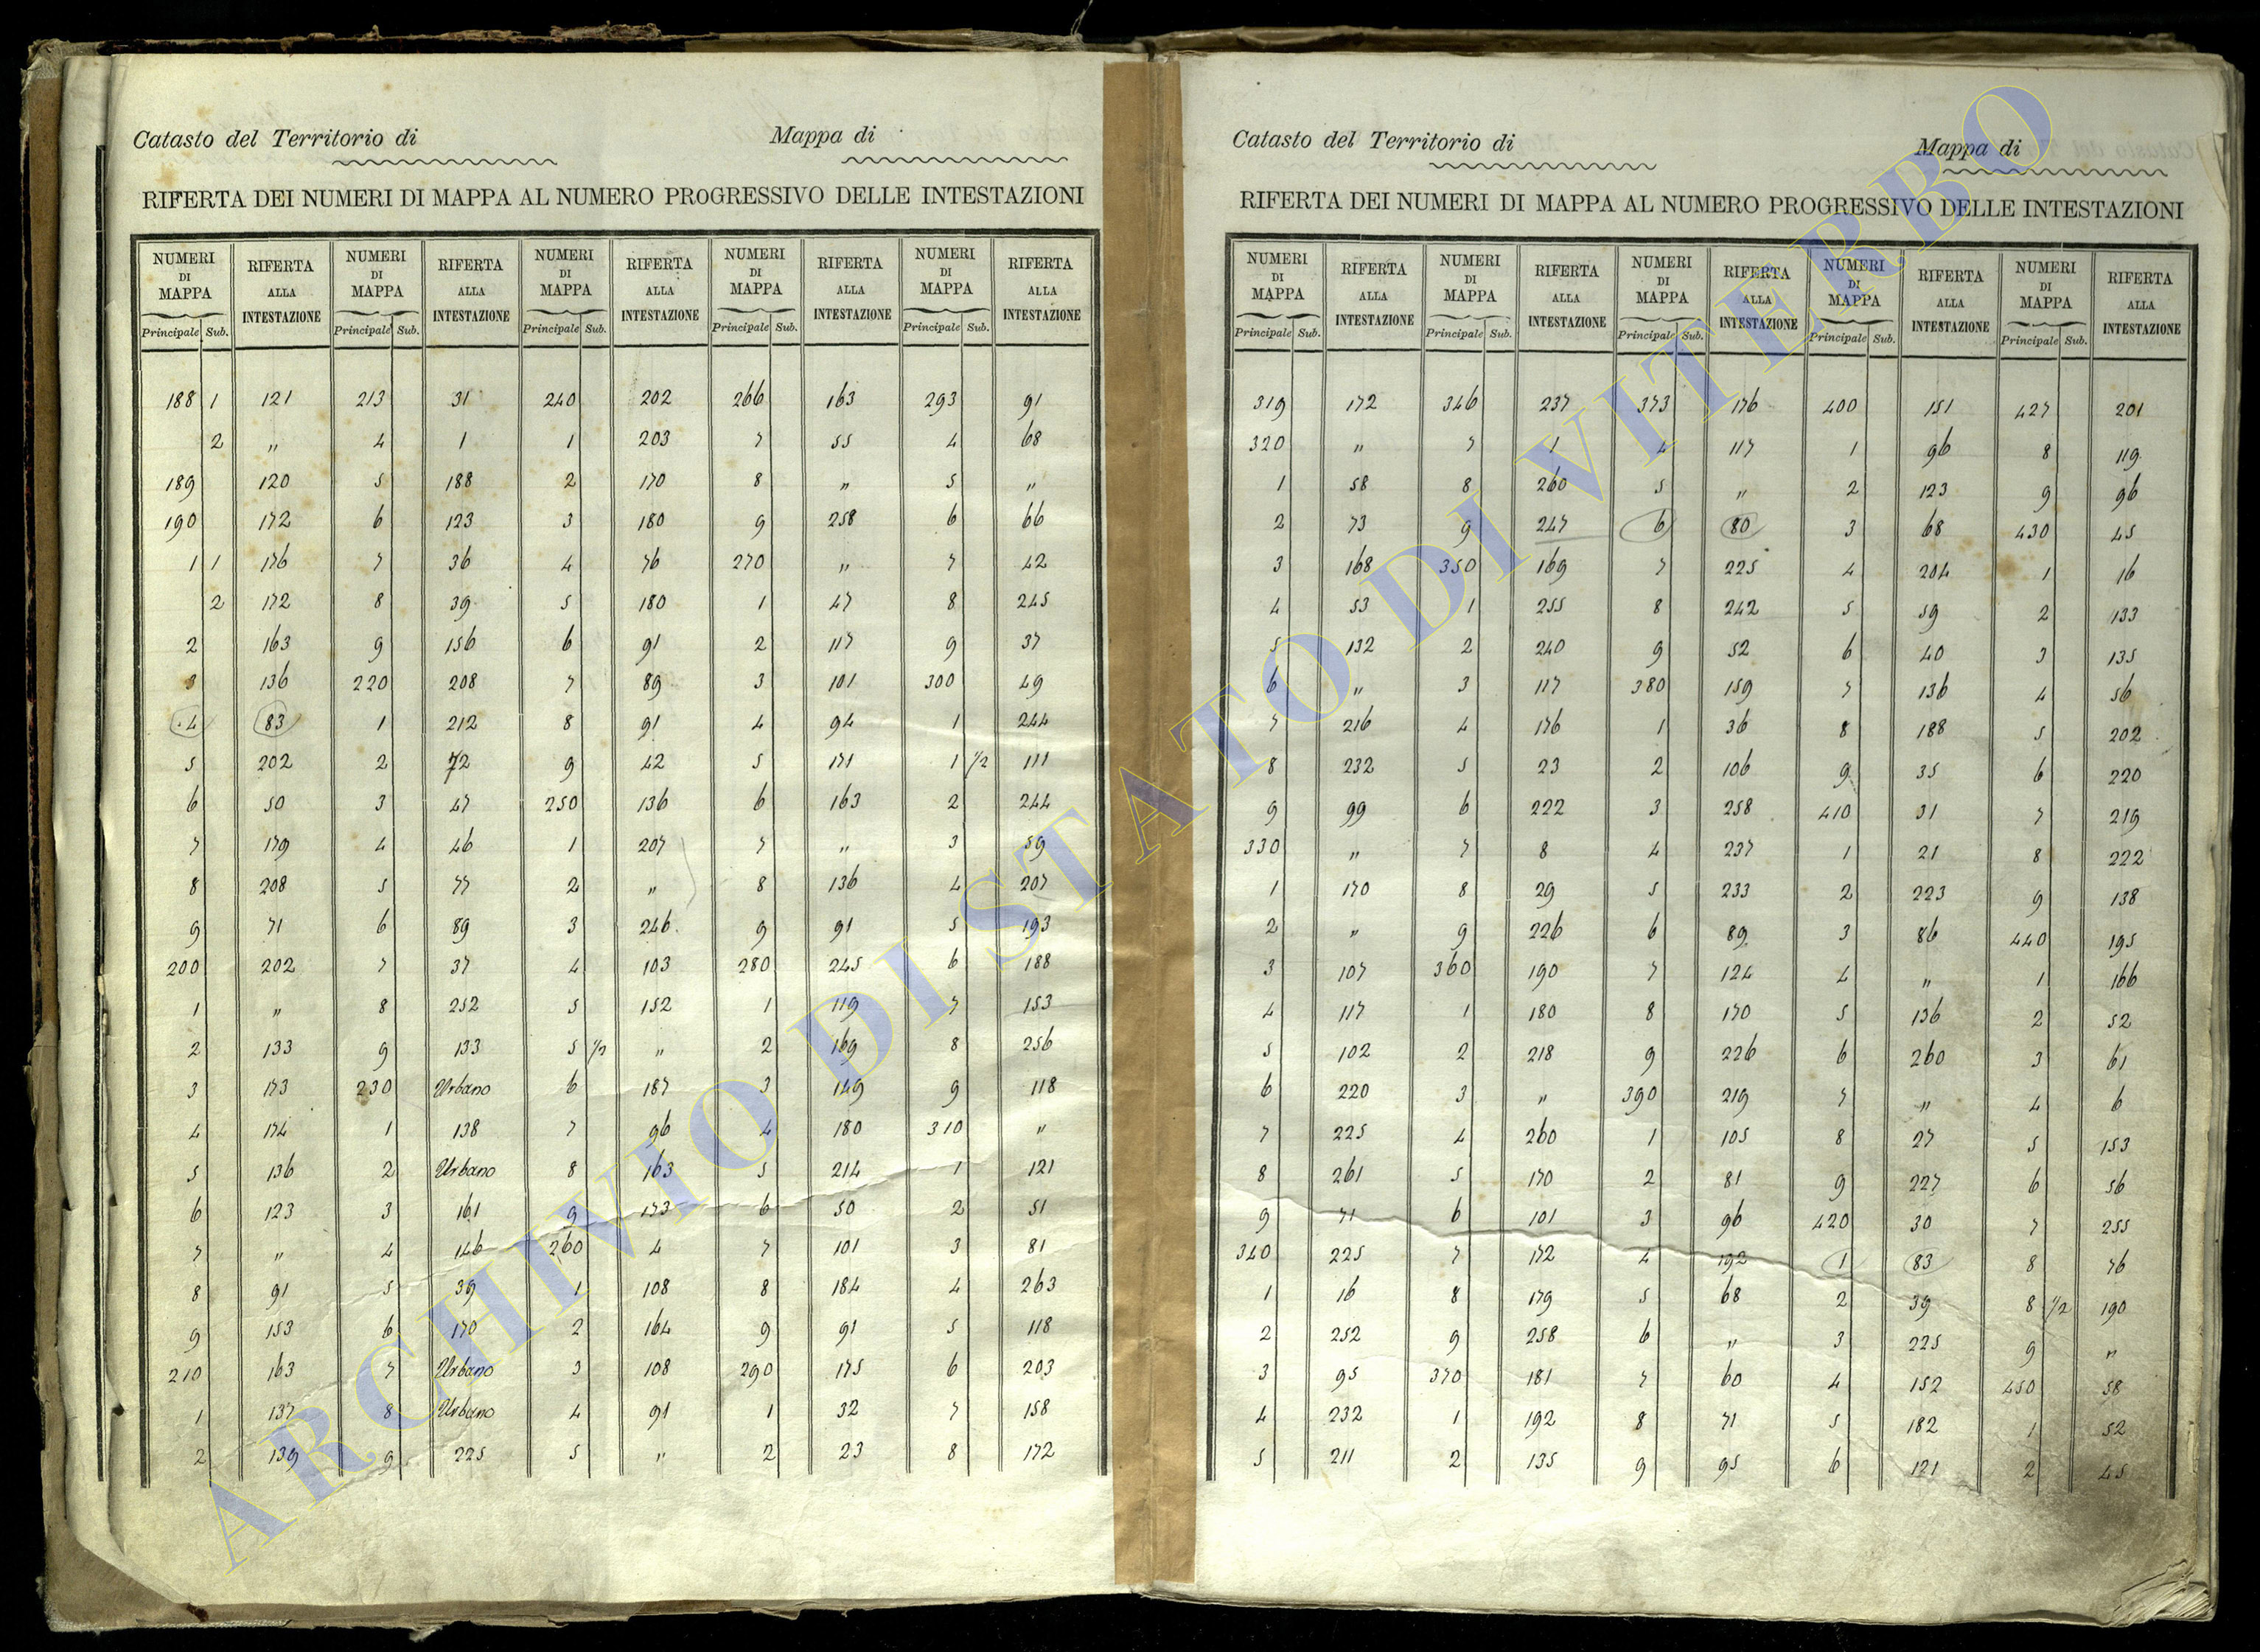 Catasto del Territorio di Mappa di
RIFERTA DEI NUMERI DI MAPPA AL NUMERO PROGRESSIVO DELLE INTESTAZIONI
NUMERI DI MAPPA RIFERTA ALLA INTESTAZIONE NUMERI DI MAPPA RIFERTA ALLA INTESTAZIONE NUMERI DI MAPPA RIFERTA ALLA INTESTAZIONE NUMERI DI MAPPA RIFERTA ALLA INTESTAZIONE NUMERI DI MAPPA RIFERTA ALLA INTESTAZIONE
Principale Sub. Principale Sub. Principale Sub. Principale Sub. Principale Sub.
188 1 121 213 31 240 202 266 163 293 91
2 " 4 1 1 203 7 55 4 68
189 120 5 188 2 170 8 " 5 "
190 172 6 123 3 180 9 258 6 66
1 1 176 7 36 4 76 270 " 7 42
2 172 8 39 5 180 1 47 8 245
2 163 9 156 6 91 2 117 9 37
3 136 220 208 7 89 3 101 300 49
4 83 1 212 8 91 4 94 1 244
5 202 2 72 9 42 5 171 1 1/2 111
6 50 3 47 250 136 6 163 2 244
7 179 4 46 1 207 7 " 3 59
8 208 5 77 2 " 8 136 4 207
9 71 6 89 3 246 9 91 5 193
200 202 7 37 4 103 280 245 6 188
1 " 8 252 5 152 1 119 7 153
2 133 9 133 5 1/2 " 2 169 8 256
3 173 230 Urbano 6 187 3 149 9 118
4 174 1 138 7 96 4 180 310 "
5 136 2 Urbano 8 163 5 214 1 121
6 123 3 161 9 173 6 50 2 51
7 " 4 146 260 4 7 101 3 81
8 91 5 39 1 108 8 184 4 263
9 153 6 170 2 164 9 91 5 118
210 163 7 Urbano 3 108 290 175 6 203
1 137 8 Urbano 4 91 1 32 7 158
2 139 9 225 5 " 2 23 8 172
Catasto del Territorio di Mappa di
RIFERTA DEI NUMERI DI MAPPA AL NUMERO PROGRESSIVO DELLE INTESTAZIONI
NUMERI DI MAPPA RIFERTA ALLA INTESTAZIONE NUMERI DI MAPPA RIFERTA ALLA INTESTAZIONE NUMERI DI MAPPA RIFERTA ALLA INTESTAZIONE NUMERI DI MAPPA RIFERTA ALLA INTESTAZIONE NUMERI DI MAPPA RIFERTA ALLA INTESTAZIONE
Principale Sub. Principale Sub. Principale Sub. Principale Sub. Principale Sub.
319 172 346 237 373 176 400 151 427 201
320 " 7 1 4 117 1 96 8 119
1 58 8 260 5 " 2 123 9 96
2 73 9 247 6 80 3 68 430 45
3 168 350 169 7 225 4 204 1 16
4 53 1 255 8 242 5 59 2 133
5 132 2 240 9 52 6 40 3 135
6 " 3 117 380 159 7 136 4 56
7 216 4 176 1 36 8 188 5 202
8 232 5 23 2 106 9 35 6 220
9 99 6 222 3 258 410 31 7 219
330 " 7 8 4 237 1 21 8 222
1 170 8 29 5 233 2 223 9 138
2 " 9 226 6 89 3 86 440 195
3 107 360 190 7 124 4 " 1 166
4 117 1 180 8 170 5 136 2 52
5 102 2 218 9 226 6 260 3 61
6 220 3 " 390 219 7 " 4 6
7 225 4 260 1 105 8 27 5 153
8 261 5 170 2 81 9 227 6 56
9 71 6 101 3 96 420 30 7 255
340 225 7 172 4 192 1 83 8 76
1 16 8 179 5 68 2 39 8 1/2 190
2 252 9 258 6 " 3 225 9 "
3 95 370 181 7 60 4 152 450 58
4 232 1 192 8 71 5 182 1 52
5 211 2 135 9 95 6 121 2 45
ARCHIVIO DI STATO DI VITERBO